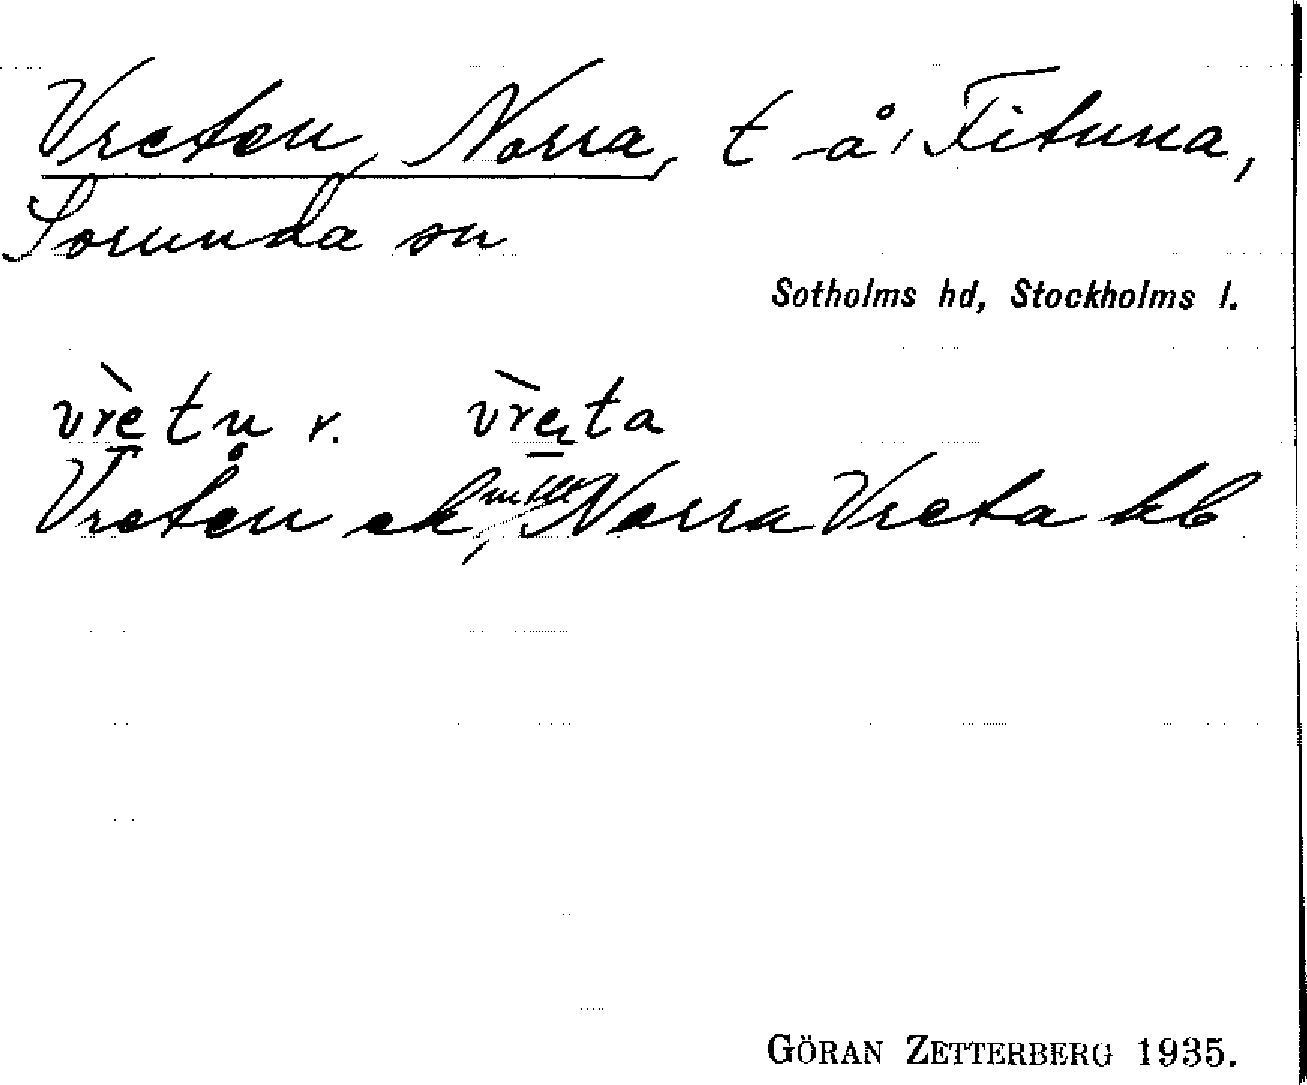 Vreten, Norra, t å, Fituna,
Sorunda sn
Sotholms hd, Stockholms l.
vrètn̥ r. vrèta
Vreten ek, Norra Vreta kb
GÖRAN ZETTERBERG 1935.